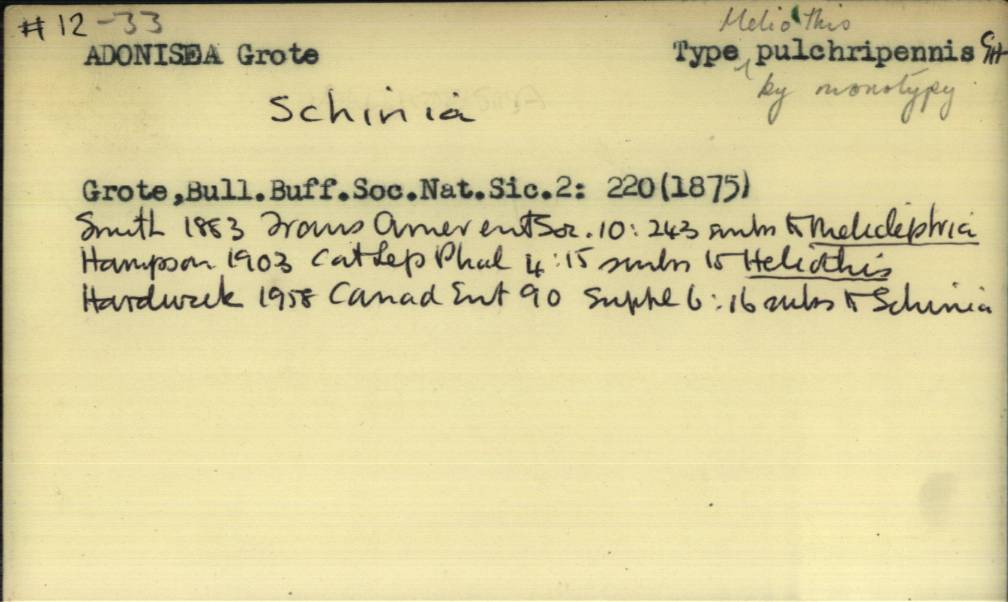 #12-33
Heliothis
ADONISEA Grote Type pulchripennis
by monotypy
Schinia
Grote,Bull.Buff.Soc.Nat.Sic.2: 220(1875)
Smith 1883 Trans Amer ent Soc. 10: 243 sunk to Melicleptria
Hampson 1903 Cat Lep Phal 4:15 sunk to Heliothis
Hardwick 1958 Canad Ent 90 Suppl 6:16 sunk to Schinia